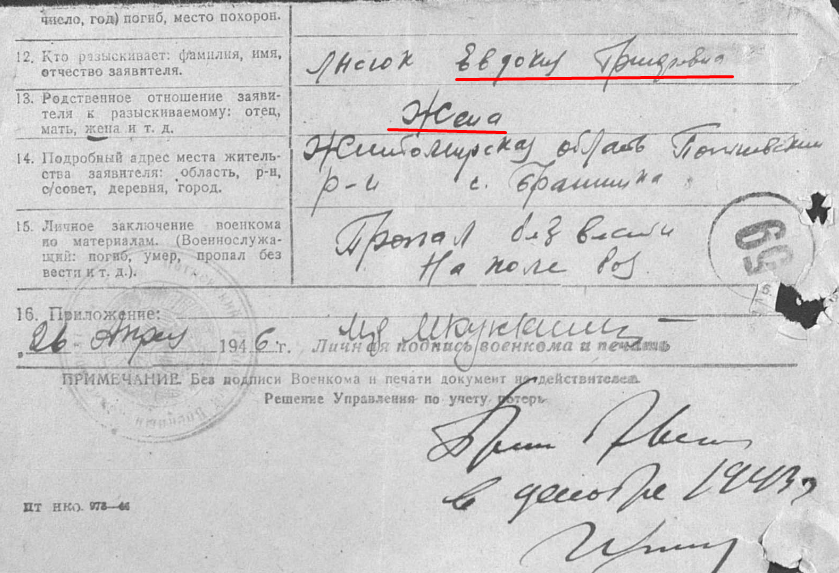 число, год) погиб, место похорон.
12. Кто разыскивает: фамилия, имя, отчество заявителя.
Евдокия
13. Родственное отношение заявителя к разыскиваемому: отец, мать, жена и т. д.
Жена
14. Подробный адрес места жительства заявителя: область, р-н, с/совет, деревня, город.
Житомирская область
р-н с.
15. Личное заключение военкома по материалам. (Военнослужащий: погиб, умер, пропал без вести и т. д.).
Пропал без вести
На поле боя
16. Приложение:
26 апреля 1946 г.
Личная подпись военкома и печать
ПРИМЕЧАНИЕ. Без подписи Военкома и печати документ не действителен.
Решение Управления по учету потерь
в декабре 1943 г
ПТ НКО. 973—44
65